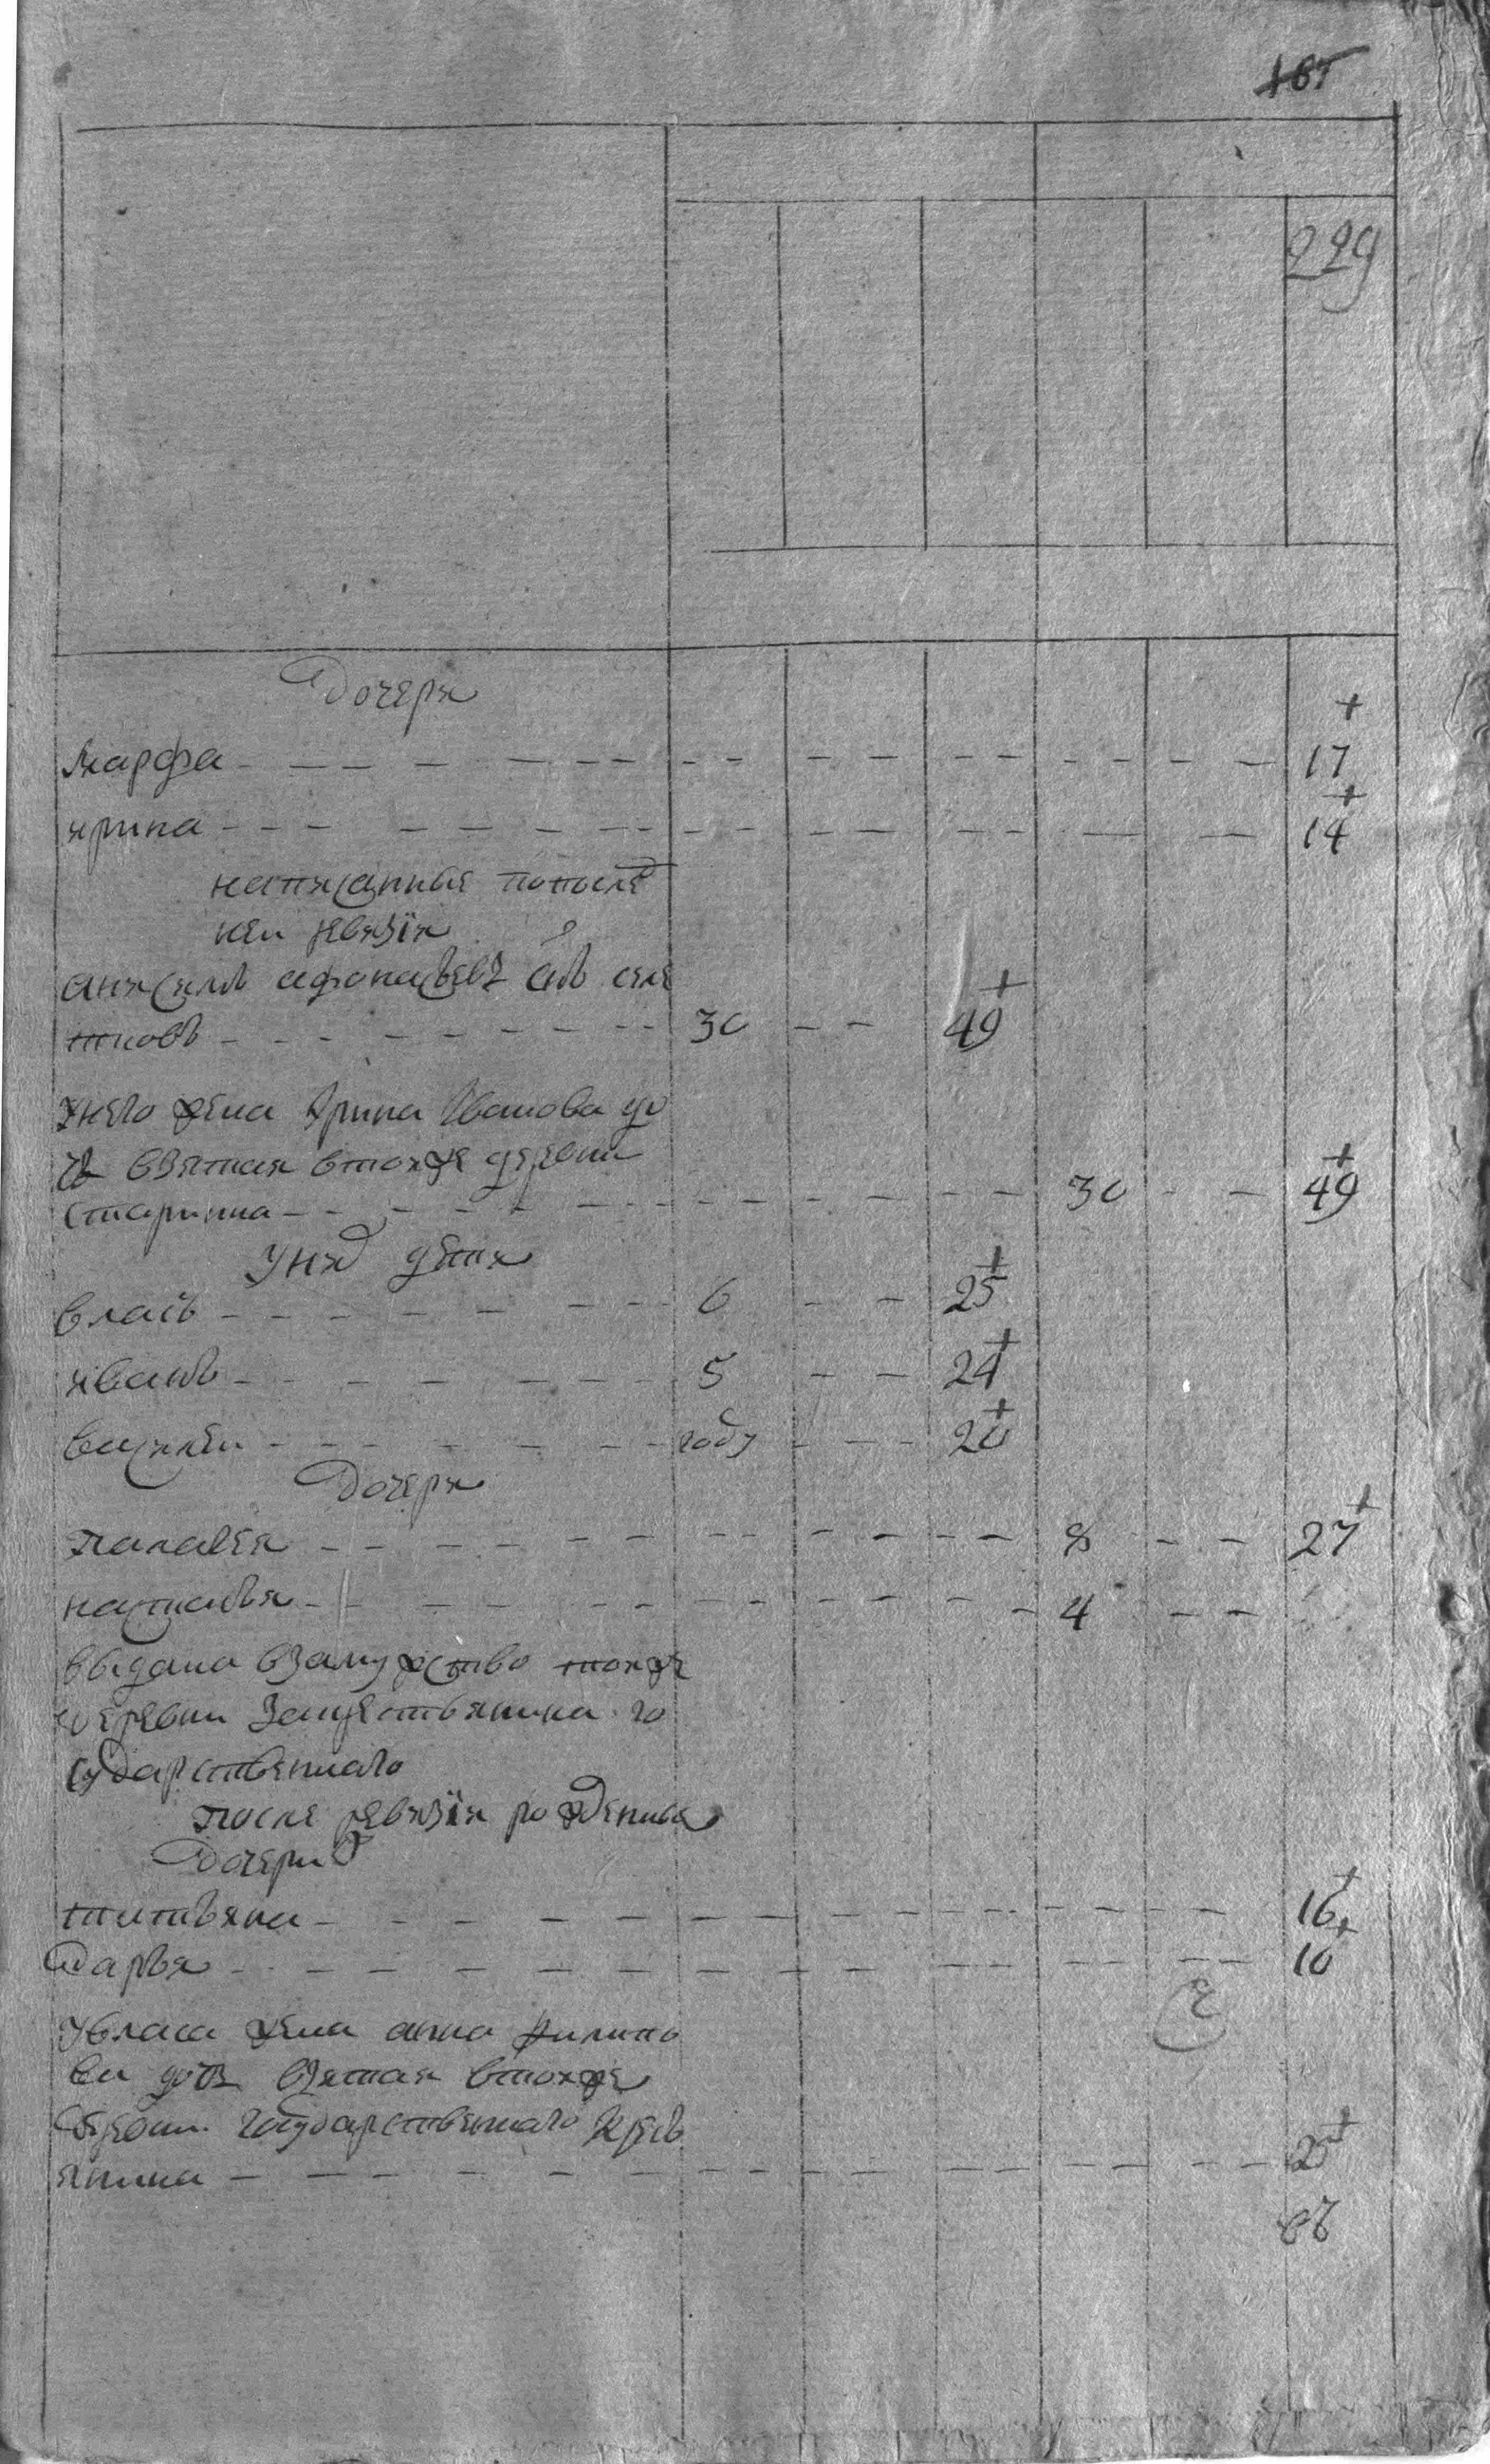 167
229
Дочери
марфа 17
ирина 14
написанные попослѣд
неи ревизiи
анисимъ афонасьевъ снъ селе
тковъ 30 49
унего жена Арина Иванова до
чь взятая втоиже деревни
старинна 30 49
Унихъ дѣти
власъ 6 25
иванъ 5 24
василеи году 20
Дочери
палагея 8 27
настасья 4
выдана взамужство тоиже
деревни
сударственнаго
после ревизiи рожденные
Дочери
татьяна 16
Дарья 10
Увласа жена анна филипо
ва дочь взятая втоиже
деревни государственнаго кресь
янина 25